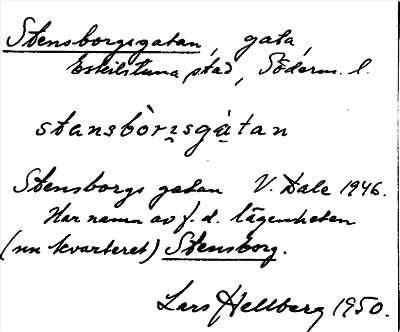 Stensborgsgatan, gata,
Eskilstuna stad, Söderm. l.
stansbòrɪ̯sgà̱tan
Stensborgs gatan V. Dale 1946.
Har namn av f. d. lägenheten
(nu kvarteret) Stensborg.
Lars Hellberg 1950.